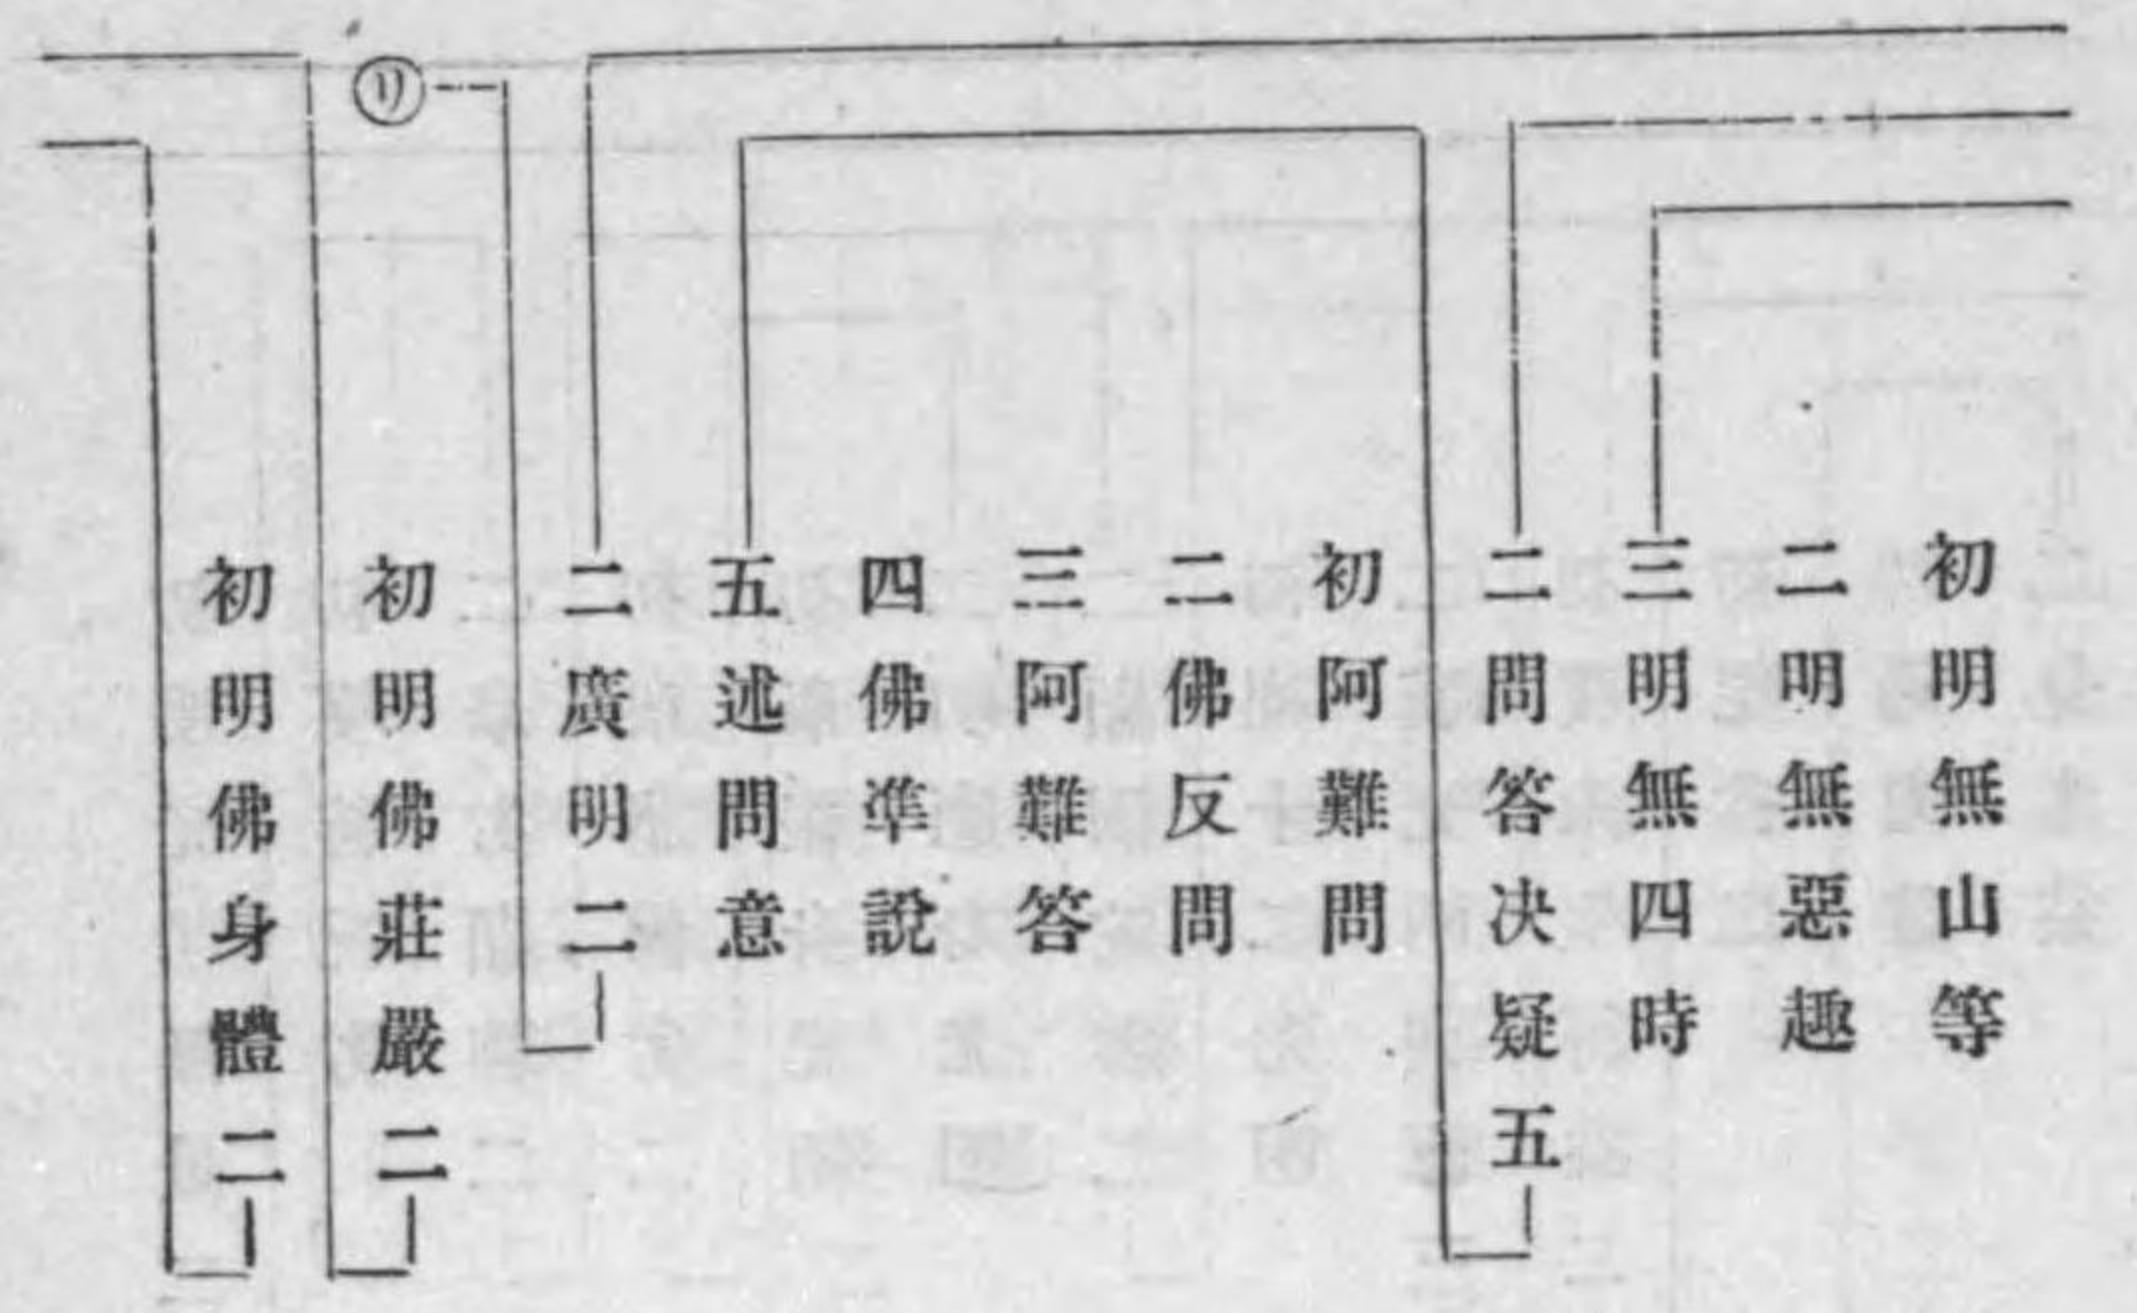 初明無山等
二明無惡趣
三明無四時
二問答決疑五
初阿難問
二佛反問
三阿難答
四佛準說
五述問意
二廣明二
リ
初明佛莊嚴二
初明佛身體二